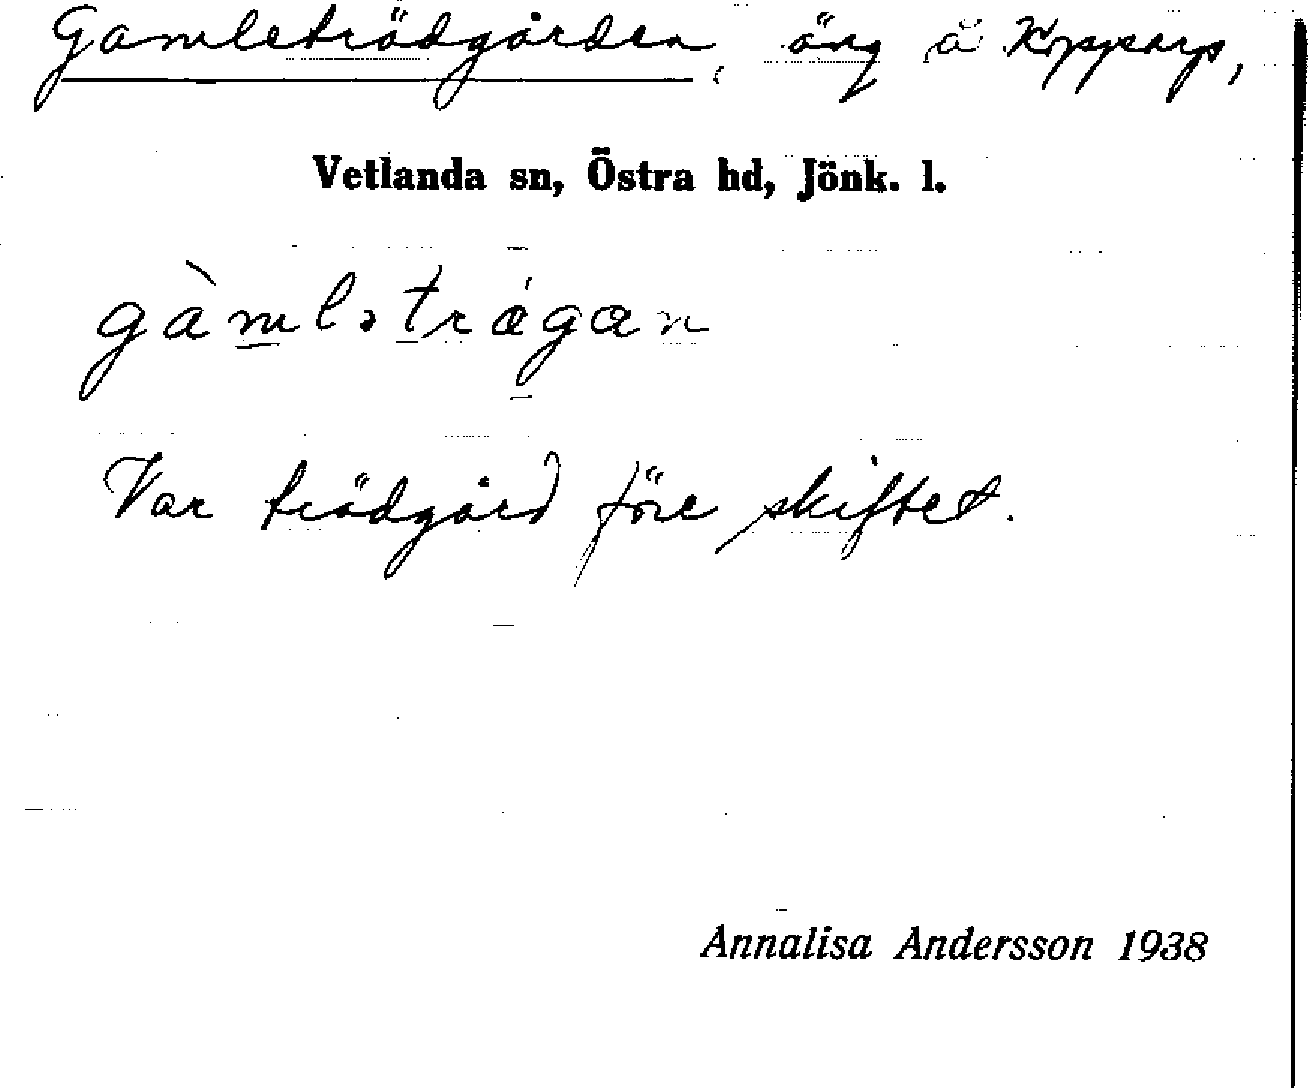 Gamleträdgården, äng å Kopparp,
Vetlanda sn, Östra hd, Jönk. l.
gàmlətrǽgæn
Var trädgård före skiftet.
Annalisa Andersson 1938